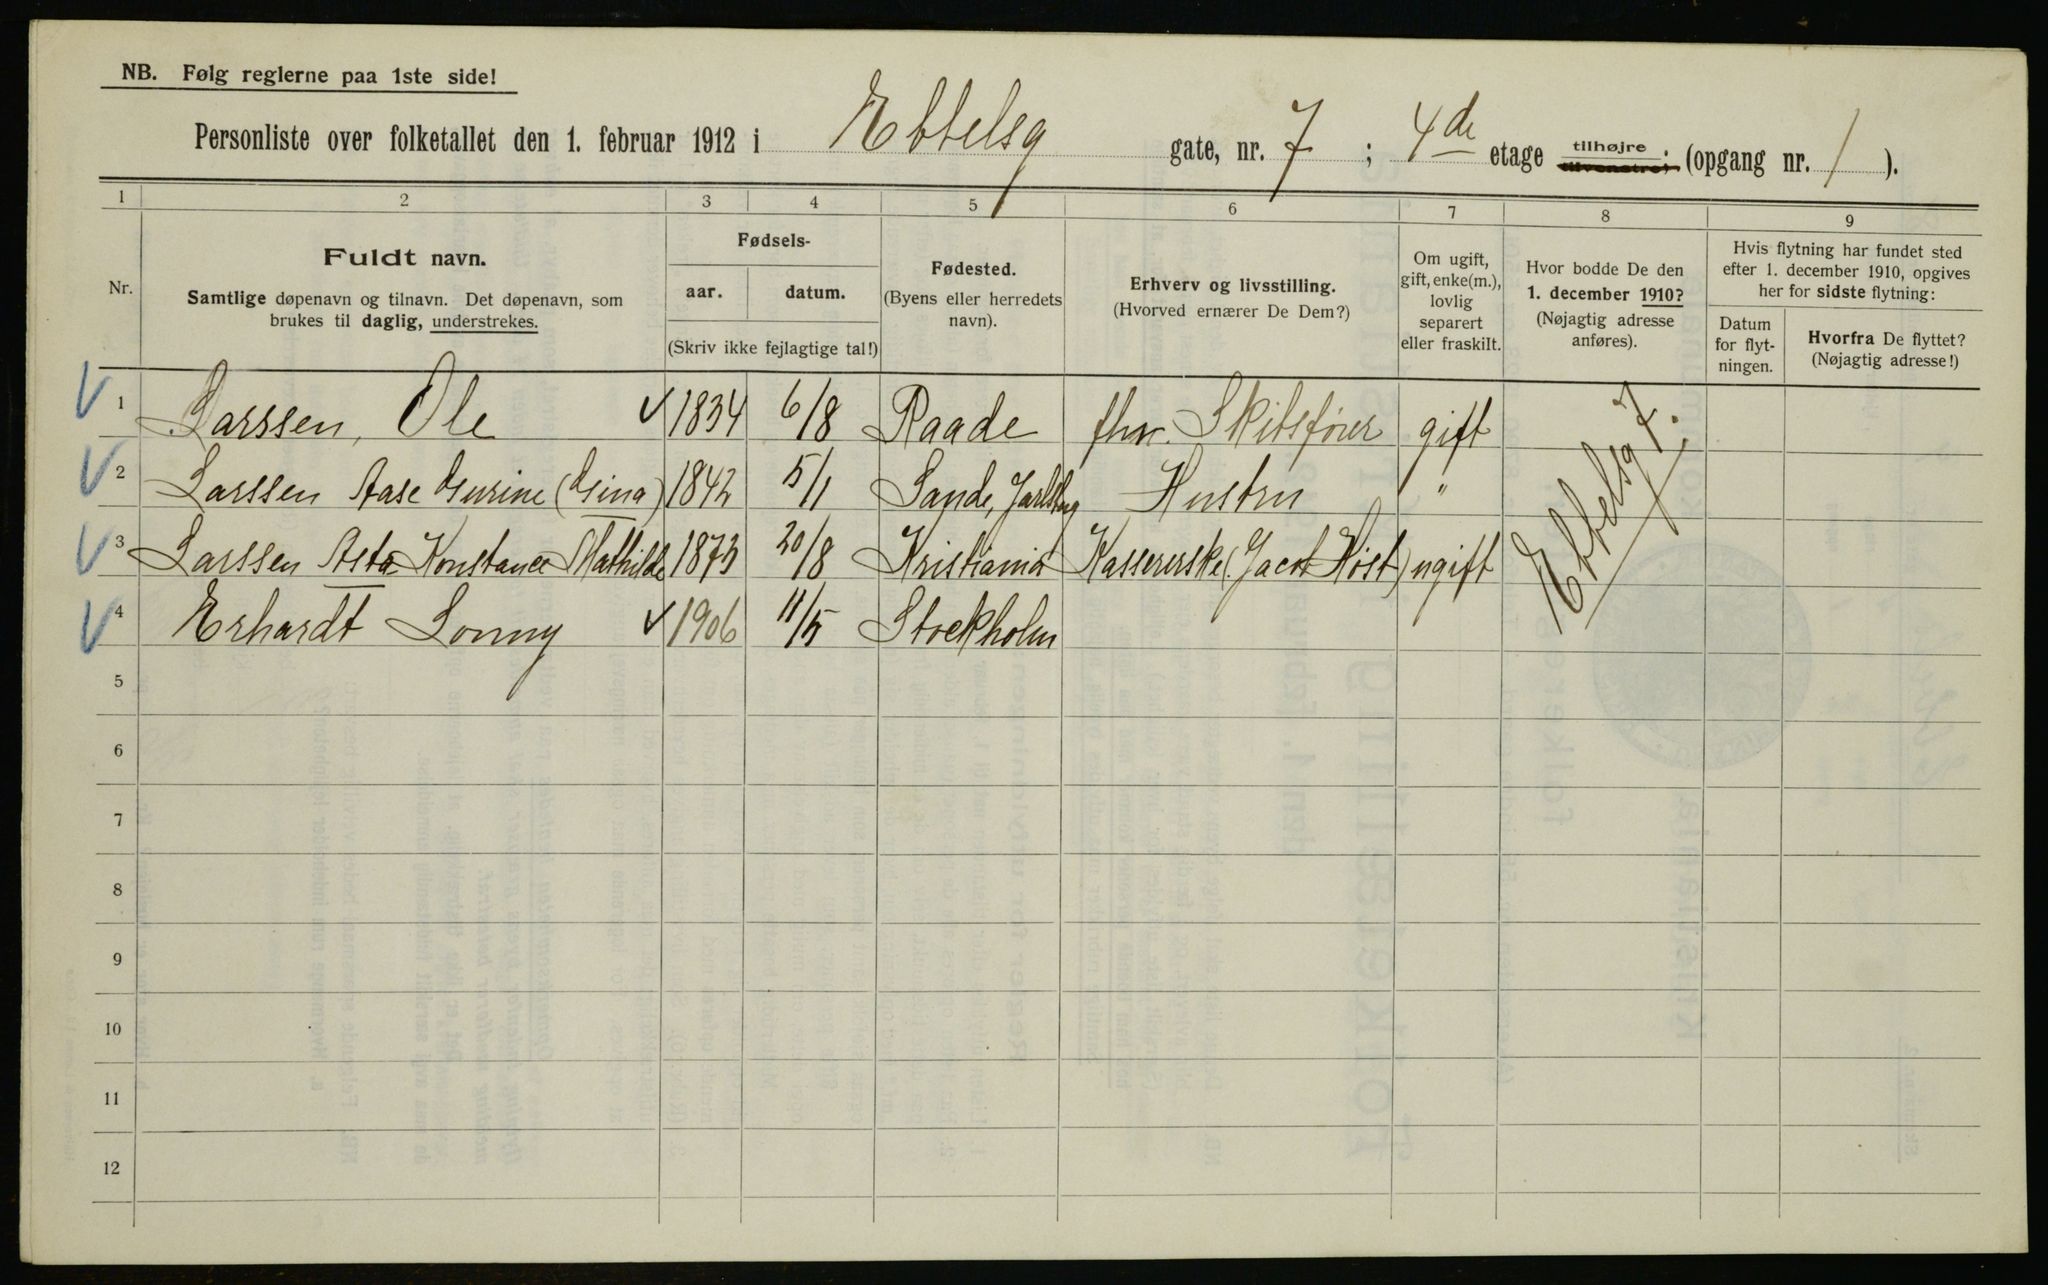 NB. Følg reglerne paa 1ste side!
Personliste over folketallet den 1. februar 1912 i Ebbelsg gate, nr. 7; 4de etage tilhøjre tilvenstre; (opgang nr. 1).
1 2 3 4 5 6 7 8 9
Nr.
Fuldt navn.
Samtlige døpenavn og tilnavn. Det døpenavn, som
brukes til daglig, understrekes.
Fødsels-
aar. datum.
(Skriv ikke fejlagtige tal!)
Fødested.
(Byens eller herredets
navn).
Erhverv og livsstilling.
(Hvorved ernærer De Dem?)
Om ugift,
gift, enke(m.),
lovlig
separert
eller fraskilt.
Hvor bodde De den
1. december 1910?
(Nøjagtig adresse
anføres).
Hvis flytning har fundet sted
efter 1. december 1910, opgives
her for sidste flytning:
Datum
for flyt-
ningen.
Hvorfra De flyttet?
(Nøjagtig adresse!)
1 Larssen, Ole 1834 6/8 Raade fhv. Skibsfører gift Ebbelsg 7.
2 Larssen Aase Gurine (Gina) 1842 5/1 Sande, Jarlsberg Hustru "
3 Larssen Asta Konstance Mathilde 1873 20/8 Kristiania Kassererske (Jacob Høst) ugift
4 Erhardt Sonny 1906 11/5 Stockholm
5
6
7
8
9
10
11
12